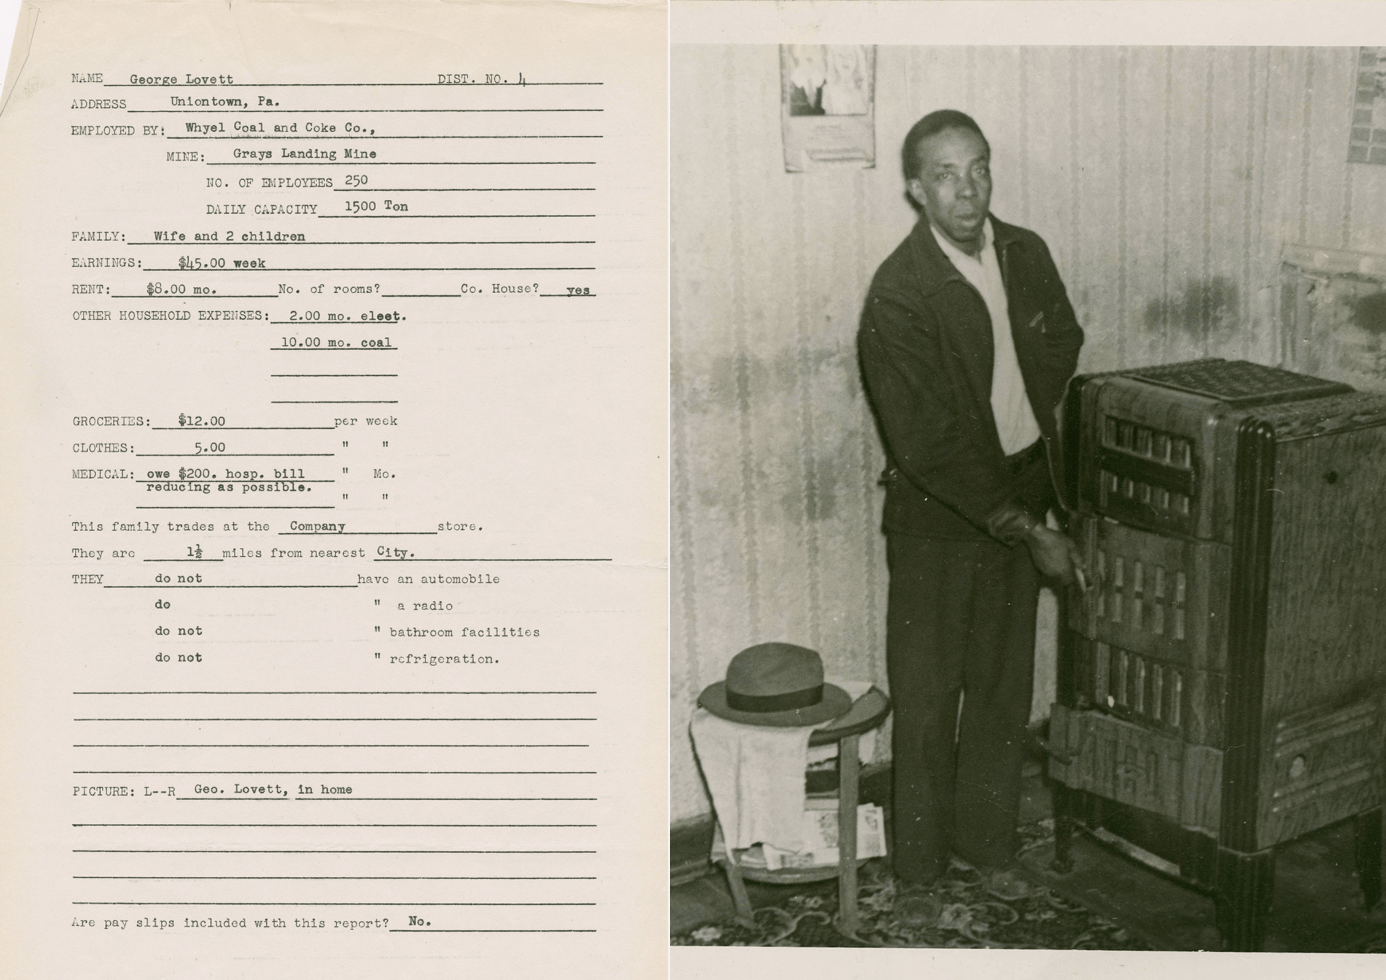 NAME George Lovett DIST. NO. 4
ADDRESS Uniontown, Pa.
EMPLOYED BY: Whyel Coal and Coke Co.,
MINE: Grays Landing Mine
NO. OF EMPLOYEES 250
DAILY CAPACITY 1500 Ton
FAMILY: Wife and 2 children
EARNINGS: $45.00 week
RENT: $8.00 mo. No. of rooms? Co. House? yes
OTHER HOUSEHOLD EXPENSES: 2.00 mo. elect.
10.00 mo. coal
GROCERIES: $12.00 per week
CLOTHES: 5.00 " "
MEDICAL: owe $200. hosp. bill " Mo.
reducing as possible. " "
This family trades at the Company store.
They are 1½ miles from nearest City.
THEY do not have an automobile
do " a radio
do not " bathroom facilities
do not " refrigeration.
PICTURE: L--R Geo. Lovett, in home
Are pay slips included with this report? No.